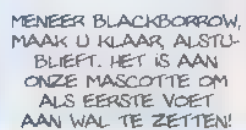 MENEER BLACKBORROW,
MAAK U KLAAR, ALSTU-
BLIEFT. HET IS AAN
ONZE MASCOTTE OM
ALS EERSTE VOET
AAN WAL TE ZETTEN!